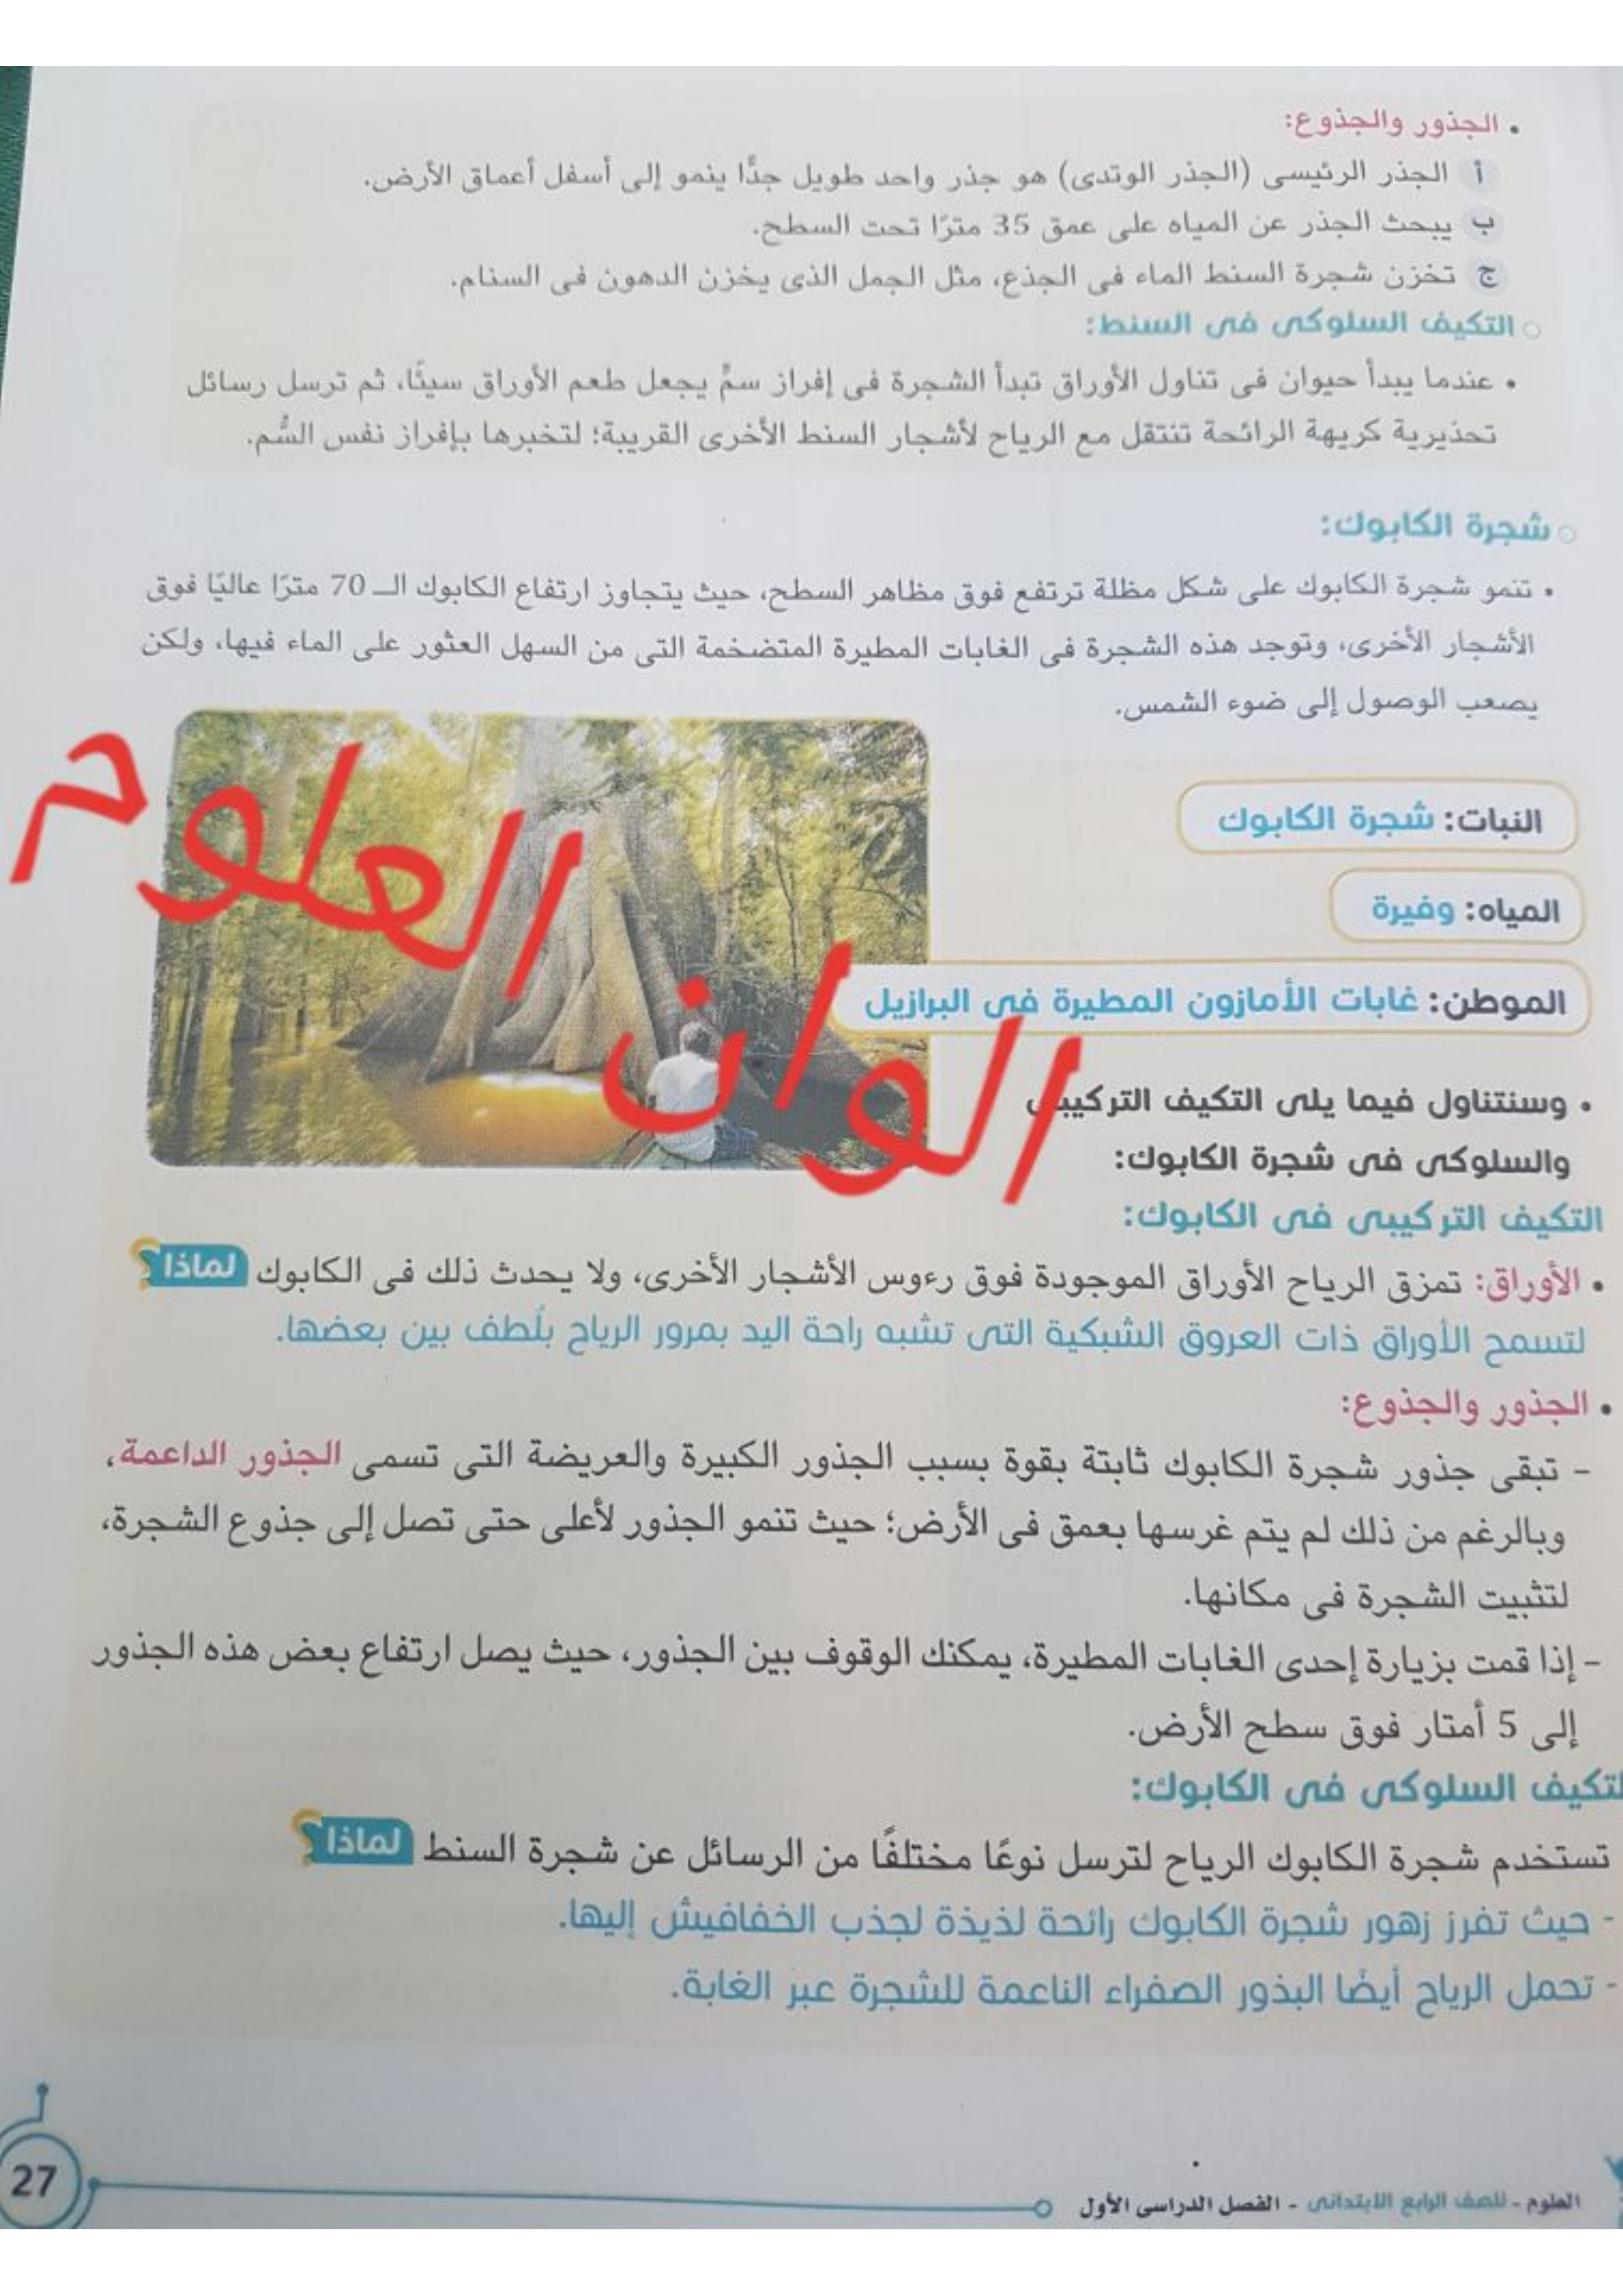 • الجذور والجذوع:
أ الجذر الرئيسى (الجذر الوتدى) هو جذر واحد طويل جدًّا ينمو إلى أسفل أعماق الأرض.
ب يبحث الجذر عن المياه على عمق 35 مترًا تحت السطح.
ج تخزن شجرة السنط الماء فى الجذع، مثل الجمل الذى يخزن الدهون فى السنام.
التكيف السلوكى فى السنط:
• عندما يبدأ حيوان فى تناول الأوراق تبدأ الشجرة فى إفراز سمٍّ يجعل طعم الأوراق سيئًا، ثم ترسل رسائل
تحذيرية كريهة الرائحة تنتقل مع الرياح لأشجار السنط الأخرى القريبة؛ لتخبرها بإفراز نفس السُّم.
شجرة الكابوك:
• تنمو شجرة الكابوك على شكل مظلة ترتفع فوق مظاهر السطح، حيث يتجاوز ارتفاع الكابوك الـ 70 مترًا عاليًا فوق
الأشجار الأخرى، وتوجد هذه الشجرة فى الغابات المطيرة المتضخمة التى من السهل العثور على الماء فيها، ولكن
يصعب الوصول إلى ضوء الشمس.
النبات: شجرة الكابوك
المياه: وفيرة
الموطن: غابات الأمازون المطيرة فى البرازيل
الوان العلوم
• وسنتناول فيما يلى التكيف التركيبى
والسلوكى فى شجرة الكابوك:
التكيف التركيبى فى الكابوك:
• الأوراق: تمزق الرياح الأوراق الموجودة فوق رءوس الأشجار الأخرى، ولا يحدث ذلك فى الكابوك لماذا؟
لتسمح الأوراق ذات العروق الشبكية التى تشبه راحة اليد بمرور الرياح بلُطف بين بعضها.
• الجذور والجذوع:
- تبقى جذور شجرة الكابوك ثابتة بقوة بسبب الجذور الكبيرة والعريضة التى تسمى الجذور الداعمة،
وبالرغم من ذلك لم يتم غرسها بعمق فى الأرض؛ حيث تنمو الجذور لأعلى حتى تصل إلى جذوع الشجرة،
لتثبيت الشجرة فى مكانها.
- إذا قمت بزيارة إحدى الغابات المطيرة، يمكنك الوقوف بين الجذور، حيث يصل ارتفاع بعض هذه الجذور
إلى 5 أمتار فوق سطح الأرض.
لتكيف السلوكى فى الكابوك:
تستخدم شجرة الكابوك الرياح لترسل نوعًا مختلفًا من الرسائل عن شجرة السنط لماذا؟
- حيث تفرز زهور شجرة الكابوك رائحة لذيذة لجذب الخفافيش إليها.
- تحمل الرياح أيضًا البذور الصفراء الناعمة للشجرة عبر الغابة.
العلوم - للصف الرابع الابتدائى - الفصل الدراسى الأول
27